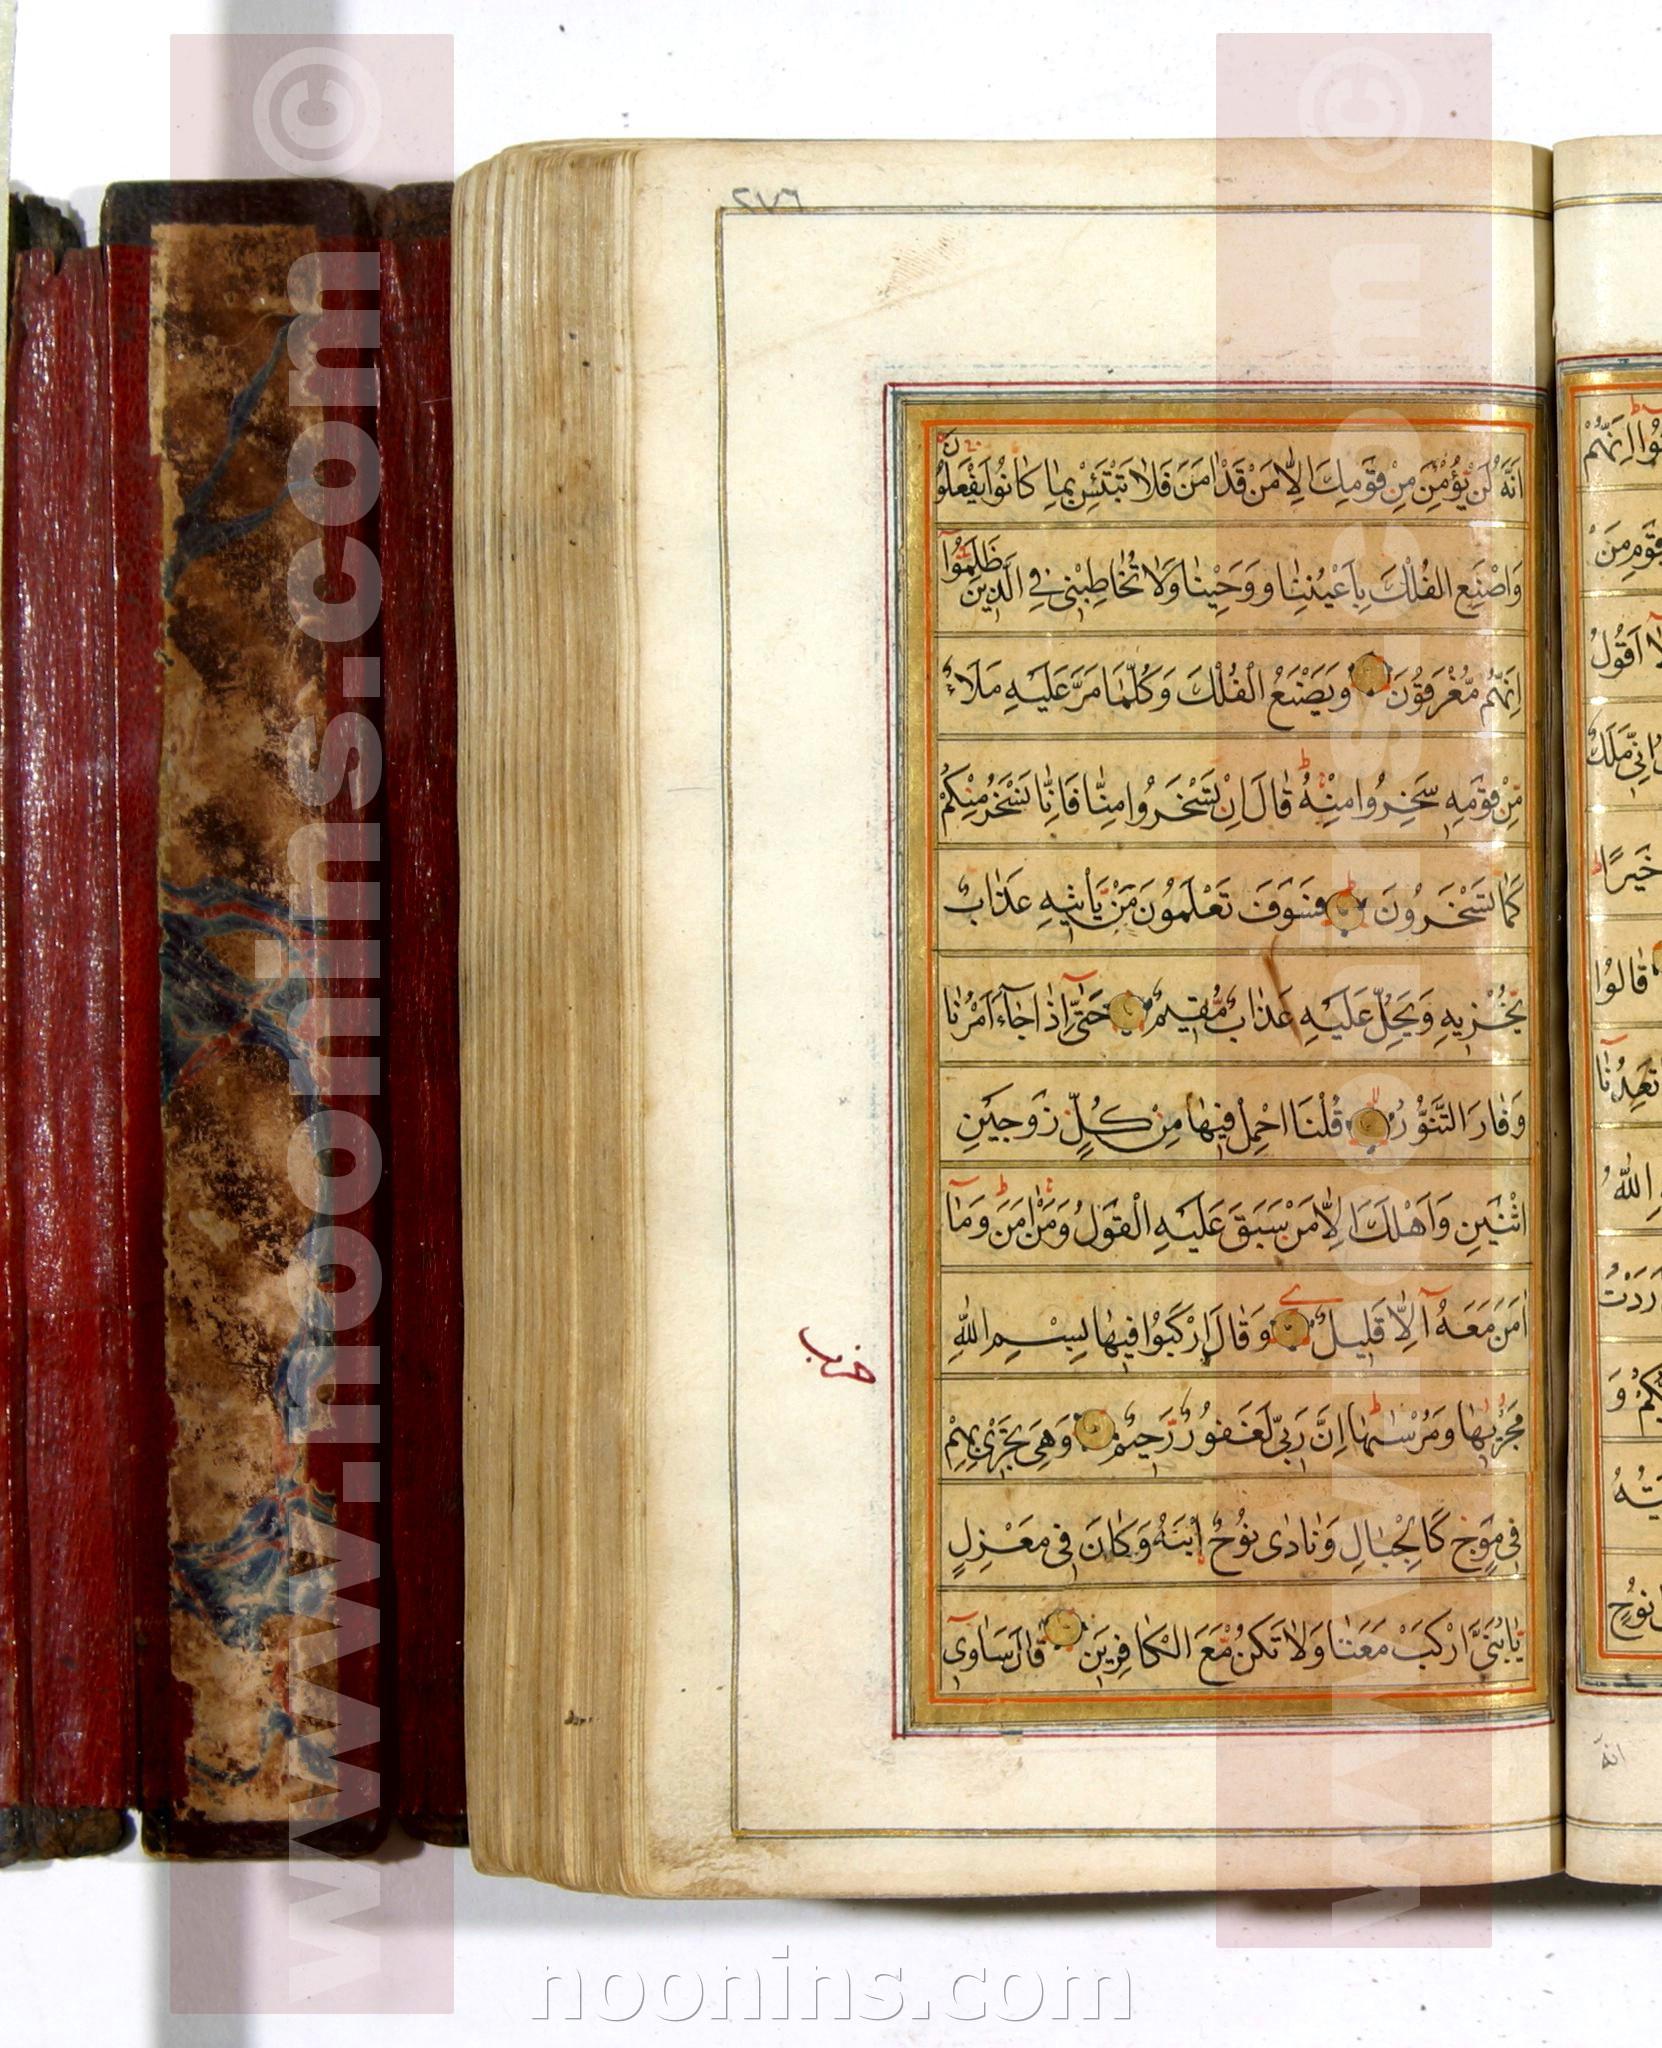 ٢٧٦
اَنَّهُ لَنْ يُؤْمِنَ مِنْ قَوْمِكَ اِلَّا مَنْ قَدْ اٰمَنَ فَلَا تَبْتَئِسْ بِمَا كَانُوا يَفْعَلُونَ
وَاصْنَعِ الْفُلْكَ بِاَعْيُنِنَا وَوَحْيِنَا وَلَا تُخَاطِبْنِي فِي الَّذِينَ ظَلَمُوا
اِنَّهُمْ مُغْرَقُونَ وَيَصْنَعُ الْفُلْكَ وَكُلَّمَا مَرَّ عَلَيْهِ مَلَاءٌ
مِنْ قَوْمِهِ سَخِرُوا مِنْهُ قَالَ اِنْ تَسْخَرُوا مِنَّا فَاِنَّا نَسْخَرُ مِنْكُمْ
كَمَا تَسْخَرُونَ فَسَوْفَ تَعْلَمُونَ مَنْ يَأْتِيهِ عَذَابٌ
يُخْزِيهِ وَيَحِلُّ عَلَيْهِ عَذَابٌ مُقِيمٌ حَتَّى اِذَا جَاءَ اَمْرُنَا
وَفَارَ التَّنُّورُ قُلْنَا احْمِلْ فِيهَا مِنْ كُلٍّ زَوْجَيْنِ
اثْنَيْنِ وَاَهْلَكَ اِلَّا مَنْ سَبَقَ عَلَيْهِ الْقَوْلُ وَمَنْ اٰمَنَ وَمَا
اٰمَنَ مَعَهُ اِلَّا قَلِيلٌ وَقَالَ ارْكَبُوا فِيهَا بِسْمِ اللهِ
مَجْرٰيهَا وَمُرْسٰيهَا اِنَّ رَبِّي لَغَفُورٌ رَحِيمٌ وَهِيَ تَجْرِي بِهِمْ
فِي مَوْجٍ كَالْجِبَالِ وَنَادٰى نُوحٌ ابْنَهُ وَكَانَ فِي مَعْزِلٍ
يَابُنَيَّ ارْكَبْ مَعَنَا وَلَا تَكُنْ مَعَ الْكَافِرِينَ قَالَ سَاٰوِي
حزب
اِنَّهُمْ
قَوْمِ مِنْ
اَقُولُ
اِنِّي مَلَكٌ
خَيْرًا
قَالُوا
تَعِدُنَا
اللهُ
نُوحٍ
انه
www.noonins.com ©
www.noonins.com ©
noonins.com